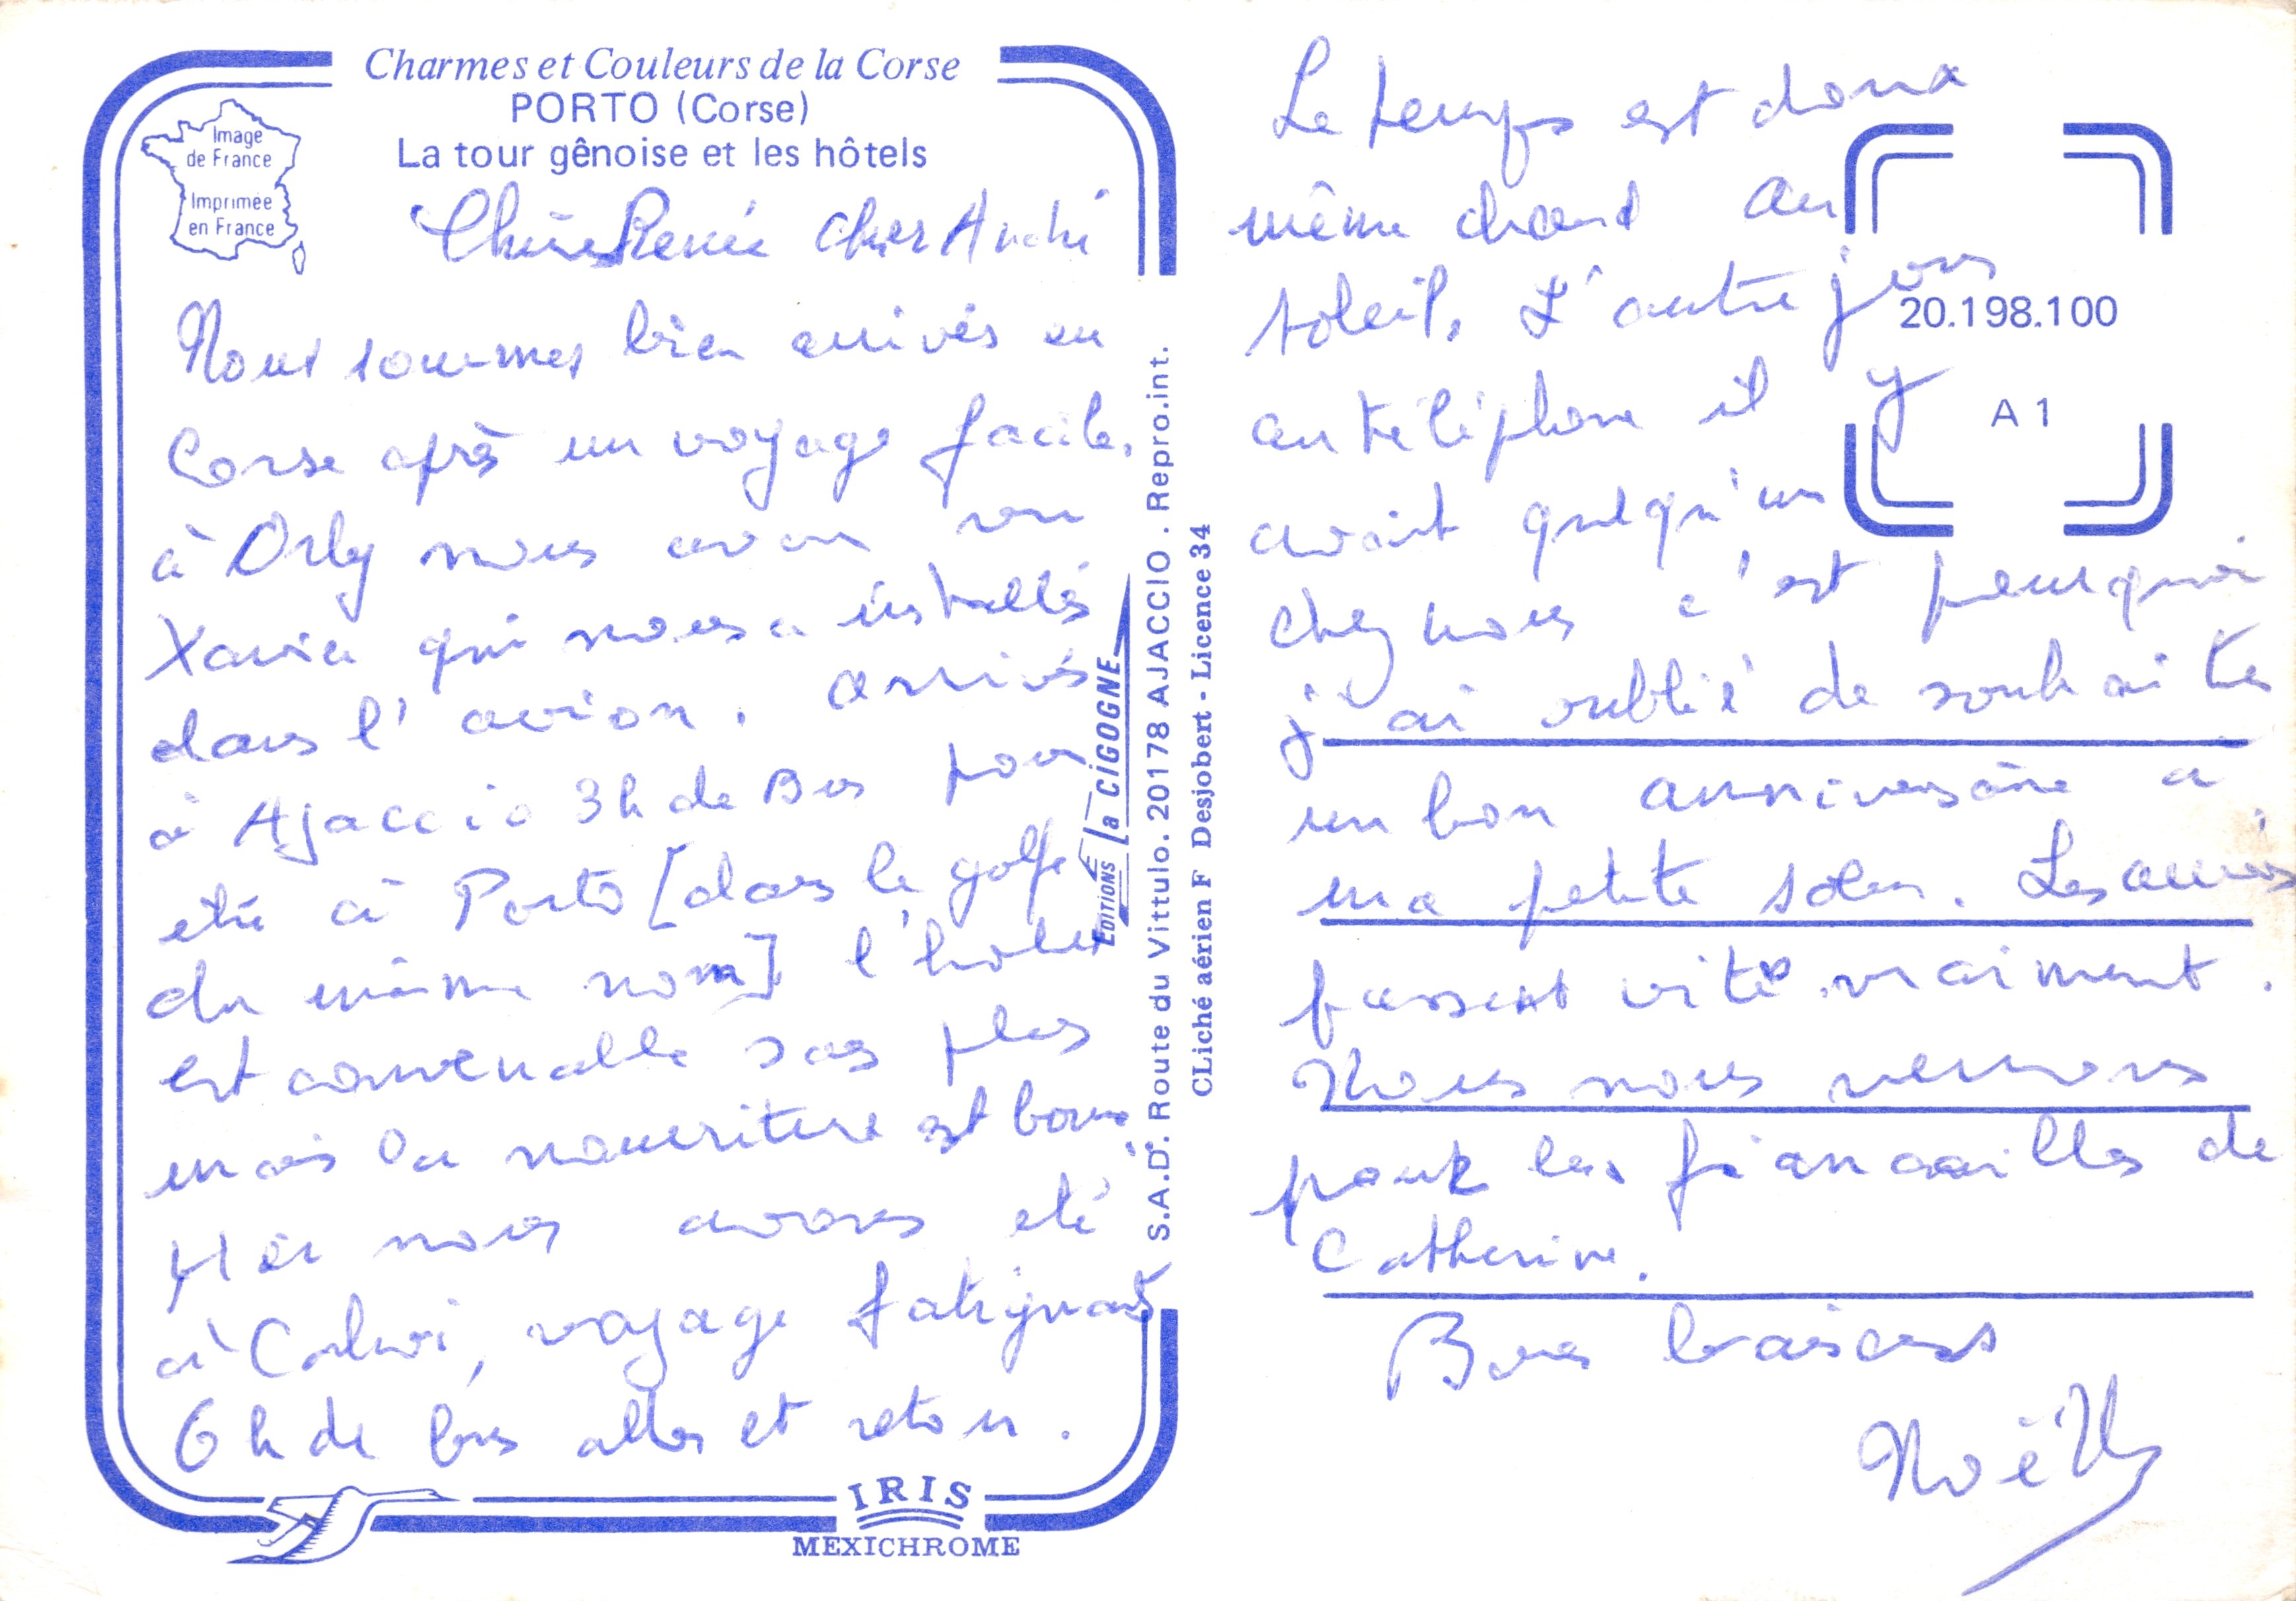 Charmes et Couleurs de la Corse
PORTO (Corse)
La tour gênoise et les hôtels
Image
de France
Imprimée
en France
Chère Renée cher André
Nous sommes bien arrivés en
Corse après un voyage facile.
à Orly nous avons vu
Xavier qui nous a installés
dans l'avion. arrivés
à Ajaccio 3h de Bus pour
été à Porto [dans le golfe
du même nom] l'hôtel
est convenable sans plus
mais la nourriture est bonne
Hier nous avons été
à Calvi, voyage fatiguant
6 h de bus aller et retour.
EDITIONS La CIGOGNE
S.A.D. Route du Vittulo. 20178 AJACCIO . Repro.int.
CLiché aérien F Desjobert - Licence 34
IRIS
MEXICHROME
20.198.100
A 1
Le temps est doux
même chaud au
soleil. L'autre jour
au téléphone il y
avait quelqu'un
chez nous c'est pourquoi
j'ai oublié de souhaiter
un bon anniversaire a
ma petite soeur. Les années
passent vite vraiment.
Nous nous verrons
pour les fiancailles de
Catherine.
Bons baisers
Noëlle